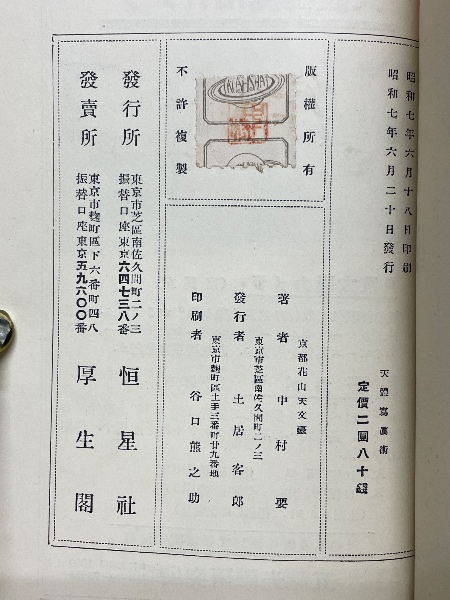 昭和七年六月十八日印刷
昭和七年六月二十日發行
天體寫眞術
定價二圓八十錢
版權所有
不許複製
京都花山天文臺
著者 中村要
東京市芝區南佐久間町二ノ三
發行者 土居客郎
東京市麴町區土手三番町廿九番地
印刷者 谷口熊之助
發行所 東京市芝區南佐久間町二ノ三 振替口座東京六四七三八番 恒星社
發賣所 東京市麴町區下六番町四八 振替口座東京五九六〇〇番 厚生閣